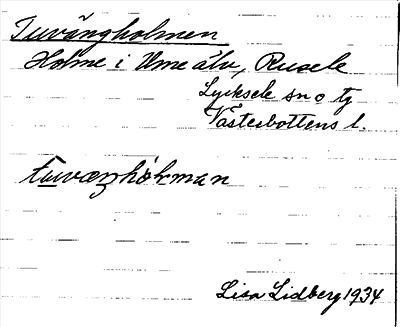 Tuvängholmen
Holme i Ume älv, Rusele
Lycksele sn o tg
Västerbottens l.
tuvæŋhòlman
Lisa Lidberg 1934